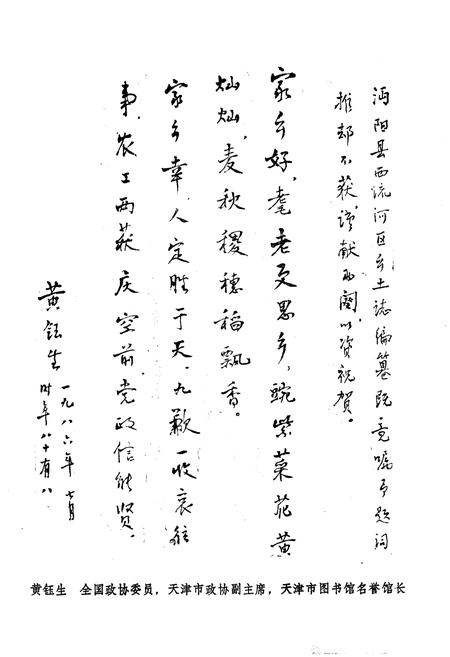 沔阳县西流河区乡土志编纂既竟嘱予题词
推却不获，谨献两阕以资祝贺。
家乡好，耄老更思乡，豌紫菜花黄
灿灿，麦秋稷穗稻飘香。
家乡幸，人定胜于天，九歉一收哀往
事，农工两获庆空前，党政信能贤。
黄钰生 一九八六年 七月
时年八十有八
黄钰生 全国政协委员，天津市政协副主席，天津市图书馆名誉馆长